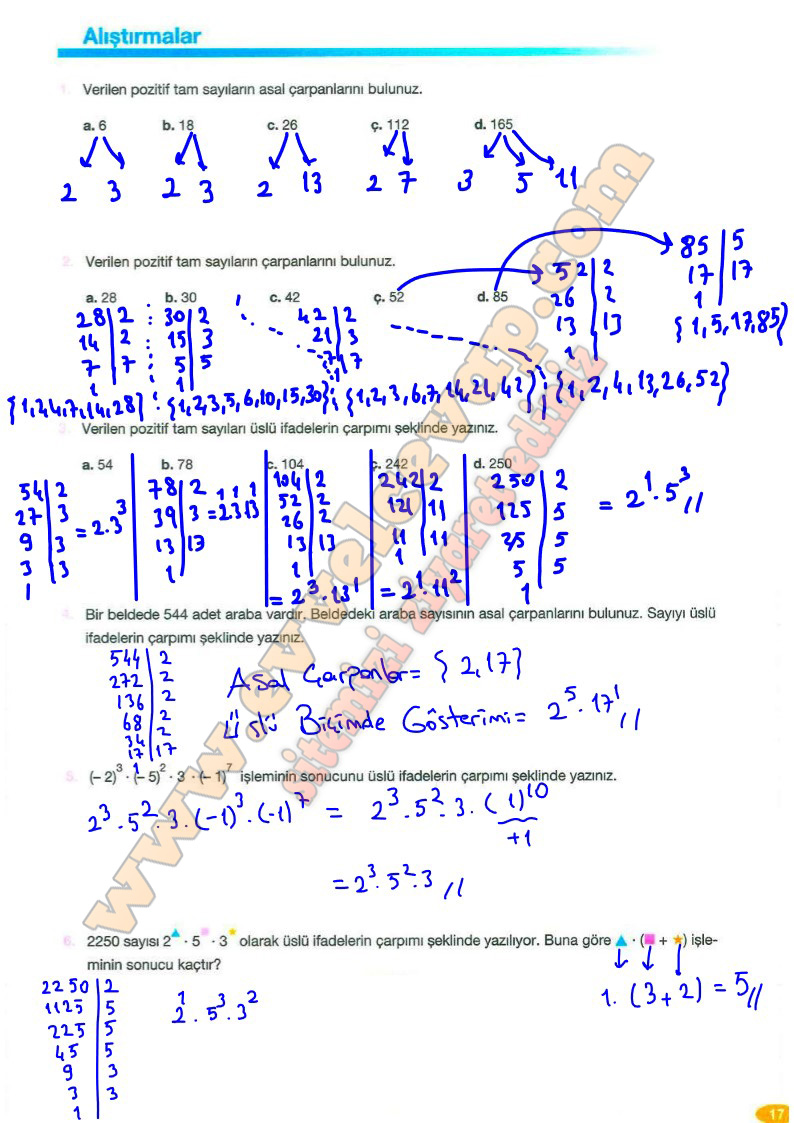 Alıştırmalar
1. Verilen pozitif tam sayıların asal çarpanlarını bulunuz.
a. 6 b. 18 c. 26 ç. 112 d. 165
2 3 2 3 2 13 2 7 3 5 11
2. Verilen pozitif tam sayıların çarpanlarını bulunuz.
a. 28 b. 30 c. 42 ç. 52 d. 85
28 | 2
14 | 2
7 | 7
1
30 | 2
15 | 3
5 | 5
1
42 | 2
21 | 3
7 | 7
1
52 | 2
26 | 2
13 | 13
1
85 | 5
17 | 17
1
{1, 5, 17, 85}
{1, 2, 4, 7, 14, 28} {1, 2, 3, 5, 6, 10, 15, 30} {1, 2, 3, 6, 7, 14, 21, 42} {1, 2, 4, 13, 26, 52}
3. Verilen pozitif tam sayıları üslü ifadelerin çarpımı şeklinde yazınız.
a. 54 b. 78 c. 104 ç. 242 d. 250
54 | 2
27 | 3
9 | 3
3 | 3
1
= 2.3³
78 | 2
39 | 3
13 | 13
1
= 2¹.3¹.13¹
104 | 2
52 | 2
26 | 2
13 | 13
1
= 2³.13¹
242 | 2
121 | 11
11 | 11
1
= 2¹.11²
250 | 2
125 | 5
25 | 5
5 | 5
1
= 2¹.5³//
4. Bir beldede 544 adet araba vardır. Beldedeki araba sayısının asal çarpanlarını bulunuz. Sayıyı üslü
ifadelerin çarpımı şeklinde yazınız.
544 | 2
272 | 2
136 | 2
68 | 2
34 | 2
17 | 17
1
Asal Çarpanlar = {2, 17}
Üslü Biçimde Gösterimi = 2⁵.17¹//
5. (– 2)³ · (– 5)² · 3 · (– 1)⁷ işleminin sonucunu üslü ifadelerin çarpımı şeklinde yazınız.
2³.5².3.(-1)³.(-1)⁷ = 2³.5².3.(1)¹⁰
+1
= 2³.5².3//
6. 2250 sayısı 2▲ · 5■ · 3★ olarak üslü ifadelerin çarpımı şeklinde yazılıyor. Buna göre ▲ · (■ + ★) işle-
minin sonucu kaçtır?
2250 | 2
1125 | 5
225 | 5
45 | 5
9 | 3
3 | 3
1
2¹.5³.3²
1.(3+2) = 5//
www.evvelcevap.com
sitemizi ziyaret ediniz
17